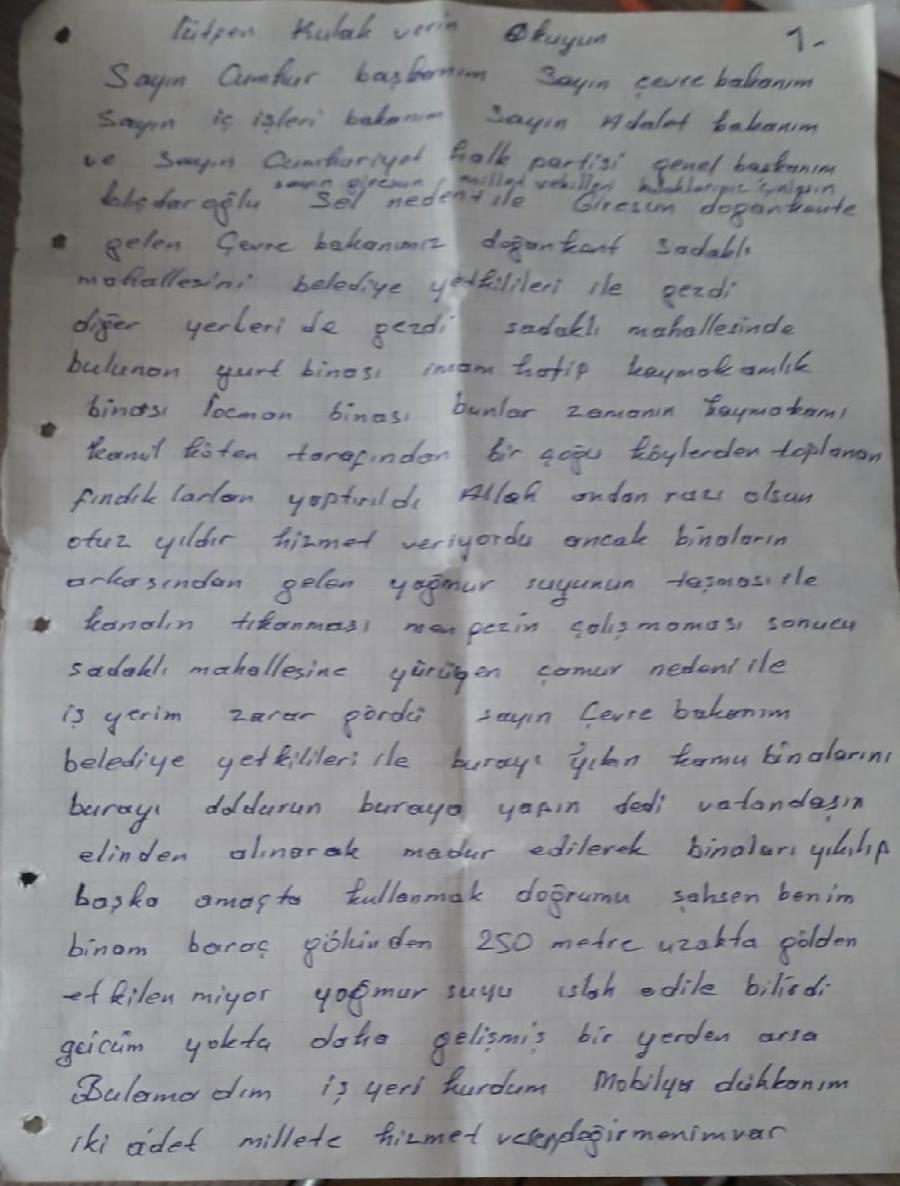 lütfen Kulak verin Okuyun 1-
Sayın Cumhur başbanım Sayın çevre bakanım
Sayın iç işleri bakanım Sayın Adalet bakanım
ve Sayın Cumhuriyet halk partisi genel başkanım
sayın giresun millet vekilleri
kılıçdaroğlu Sel nedeni ile Giresun doğankente
gelen Çevre bakanımız doğankent sadaklı
mahallesini belediye yetkilileri ile gezdi
diğer yerleri de gezdi sadaklı mahallesinde
bulunan yurt binası imam hatip kaymakamlık
binası locman binası bunlar zamanın kaymakamı
kamil köten tarafından bir çoğu köylerden toplanan
fındıklardan yaptırıldı Allah ondan razı olsun
otuz yıldır hizmet veriyordu ancak binaların
arkasından gelen yağmur suyunun taşması ile
kanalın tıkanması menfezin çalışmaması sonucu
sadaklı mahallesine yürüyen çamur nedeni ile
iş yerim zarar gördü sayın Çevre bakanım
belediye yetkilileri ile burayı yıkın kamu binalarını
burayı doldurun buraya yapın dedi vatandaşın
elinden alınarak madur edilerek binaları yıkılıp
başka amaçta kullanmak doğrumu şahsen benim
binam baraç gölünden 250 metre uzakta gölden
etkilen miyor yağmur suyu ıslah edile bilirdi
gücüm yokta daha gelişmiş bir yerden arsa
Bulamadım iş yeri kurdum Mobilya dükkanım
iki adet millete hizmet veren değirmenim var